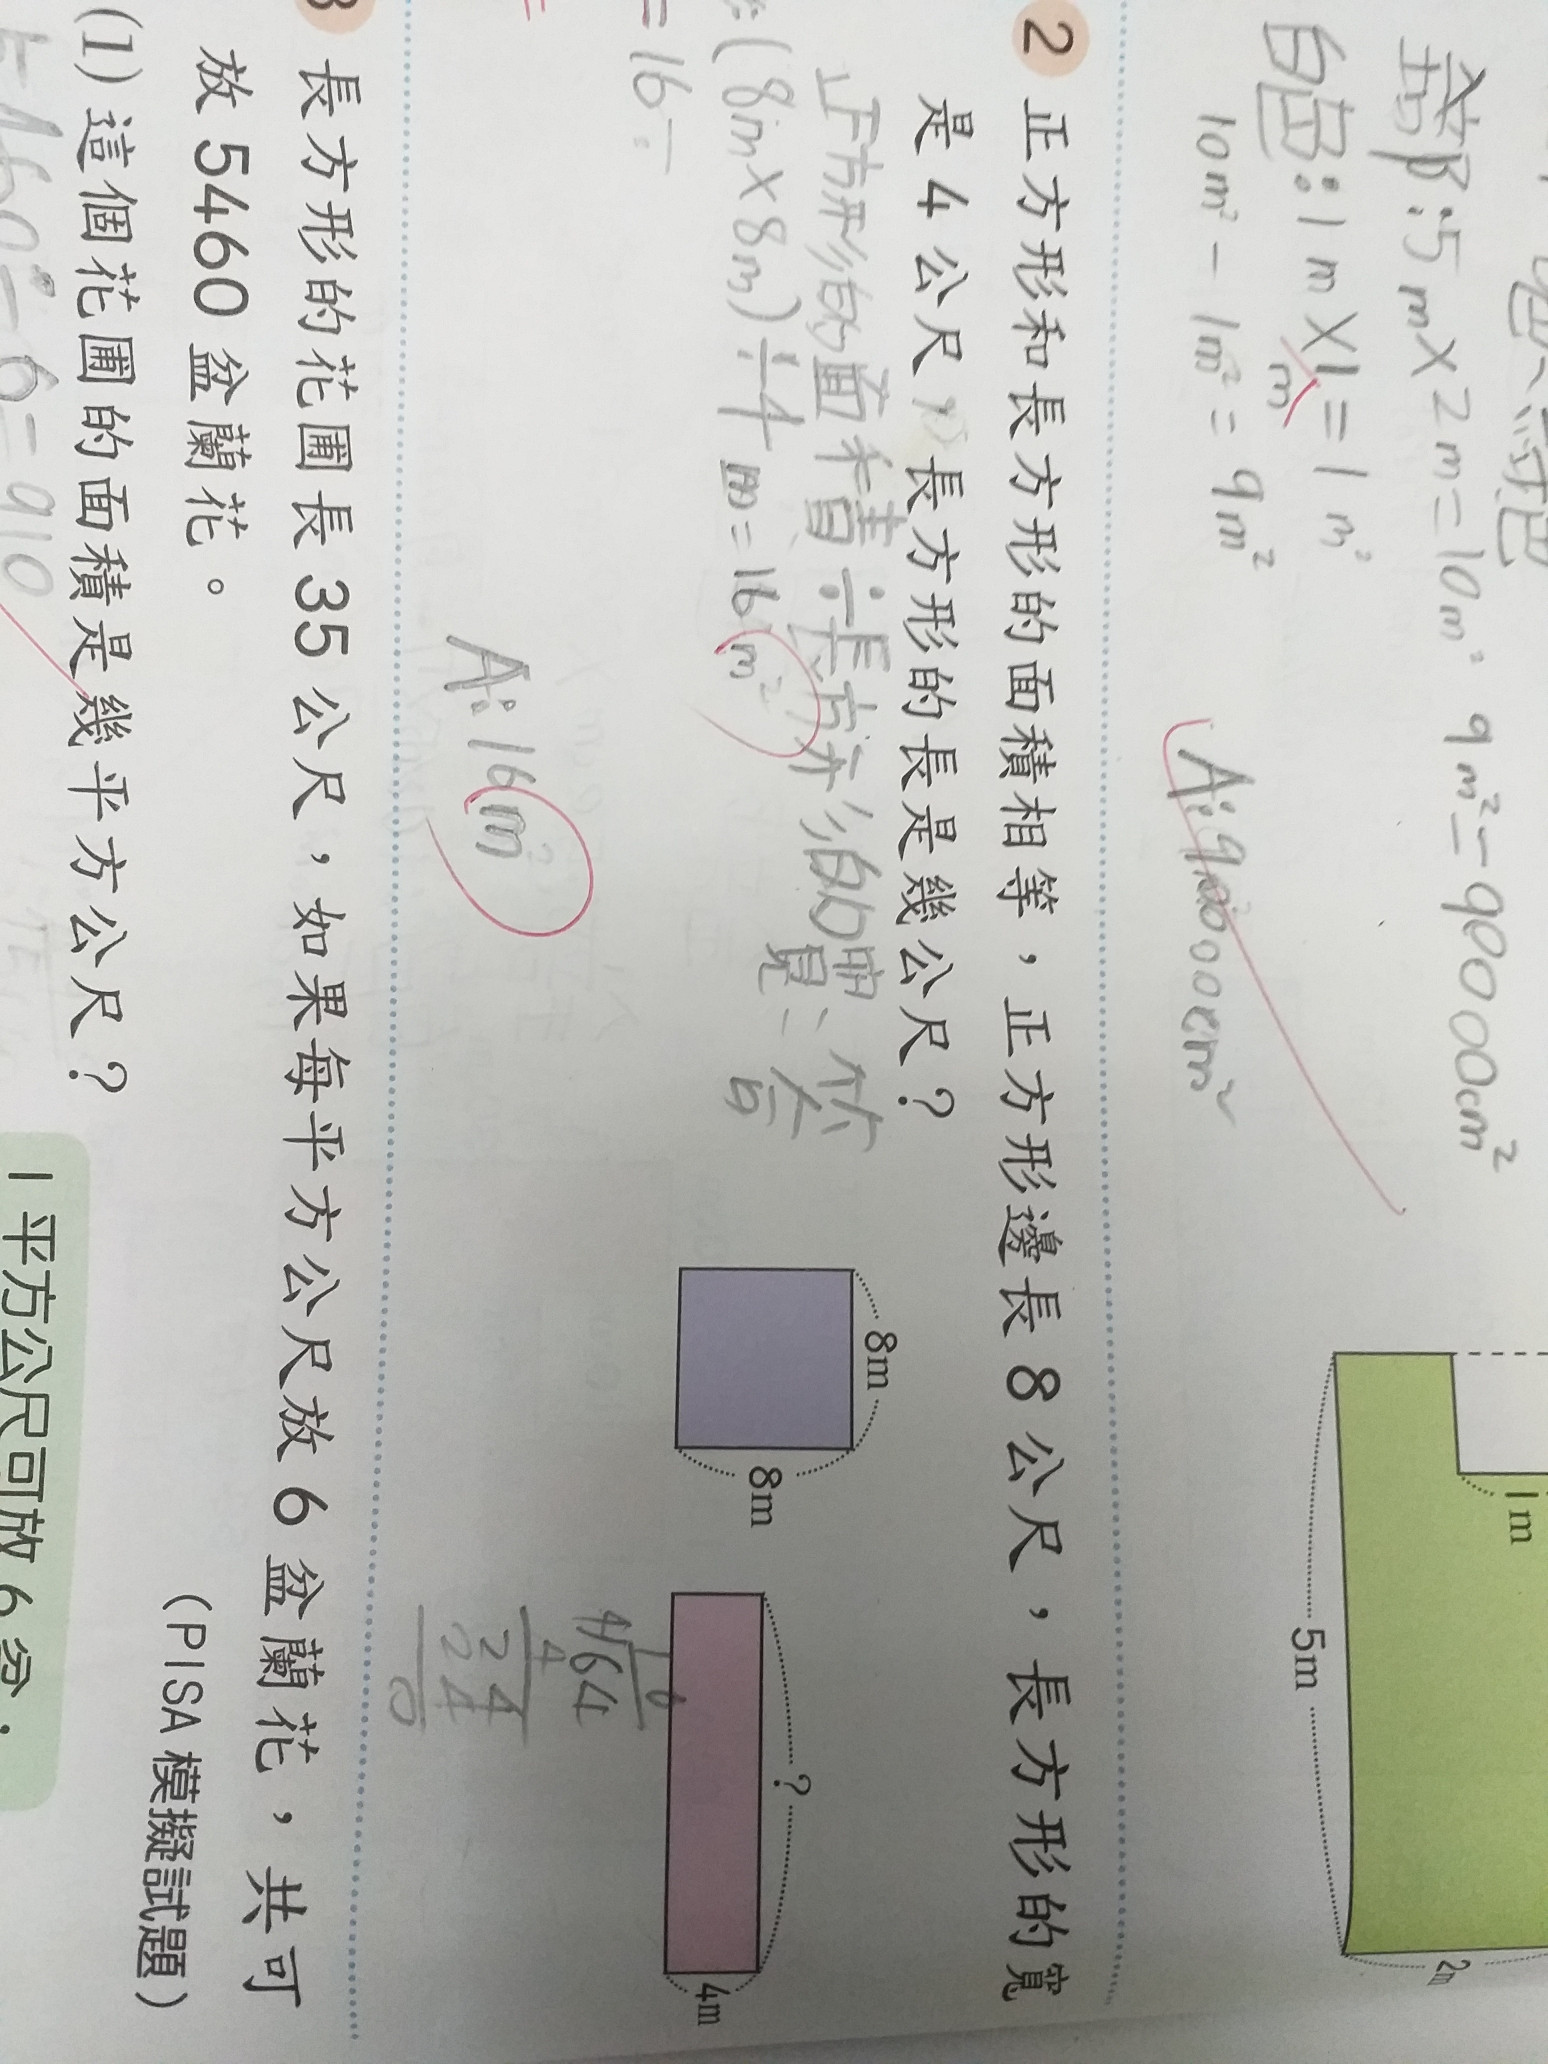 全部:5m×2m=10m² 9m²=90000cm²
白色:1m×1m=1m²
10m²-1m²=9m²
A:90000cm²
1m
5m
2m
2 正方形和長方形的面積相等,正方形邊長8公尺,長方形的寬
是4公尺,長方形的長是幾公尺?
正方形的面積÷長方形的寬=答
(8m×8m)÷4m=16m²
=16=
A:16m²
8m
8m
?
4m
16
4 64
4
24
24
0
3 長方形的花圃長35公尺,如果每平方公尺放6盆蘭花,共可
放5460盆蘭花。
(PISA模擬試題)
(1)這個花圃的面積是幾平方公尺?
5460÷6=910
1平方公尺可放6盆,